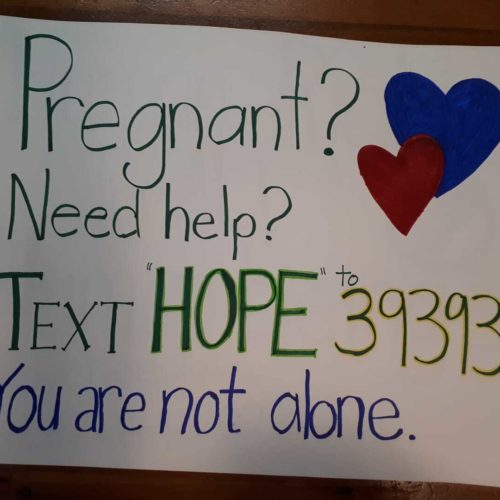 Pregnant?
Need help?
TEXT "HOPE" to 39393
You are not alone.